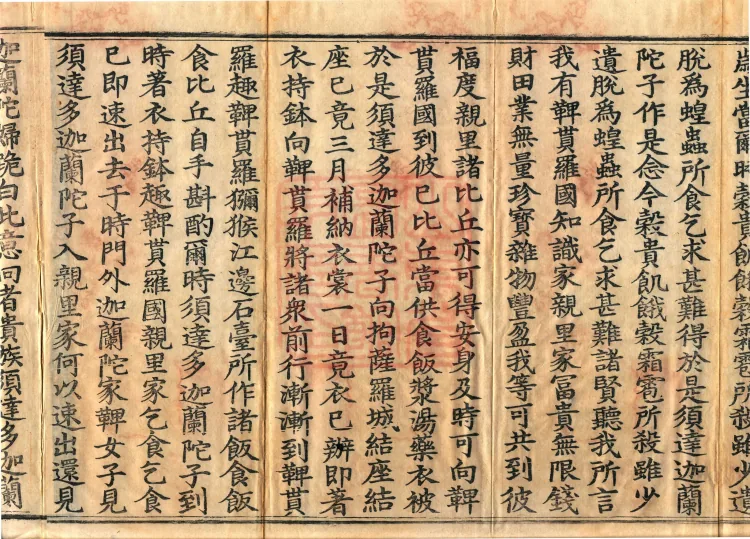 歲生當爾時穀貴飢餓穀霜雹所殺雖少遺
脫為蝗蟲所食乞求甚難得於是須達迦蘭
陀子作是念今穀貴飢餓穀霜雹所殺雖少
遺脫為蝗蟲所食乞求甚難諸賢聽我所言
我有鞞貰羅國知識家親里家冨貴無限錢
財田業無量珍寶雜物豐盈我等可共到彼
福度親里諸比丘亦可得安身及時可向鞞
貰羅國到彼已比丘當供食飯漿湯藥衣被
於是須達多迦蘭陀子向拘薩羅城結座結
座已竟三月補納衣裳一日竟衣已辦即著
衣持鉢向鞞貰羅將諸衆前行漸漸到鞞貰
羅趣鞞貰羅獼猴江邊石臺所作諸飯食飯
食比丘自手斟酌爾時須達多迦蘭陀子到
時著衣持鉢趣鞞貰羅國親里家乞食乞食
已即速出去于時門外迦蘭陀家鞞女子見
須達多迦蘭陀子入親里家何以速出還見
迦蘭陀婦跪白此意向者貴族須達多迦蘭